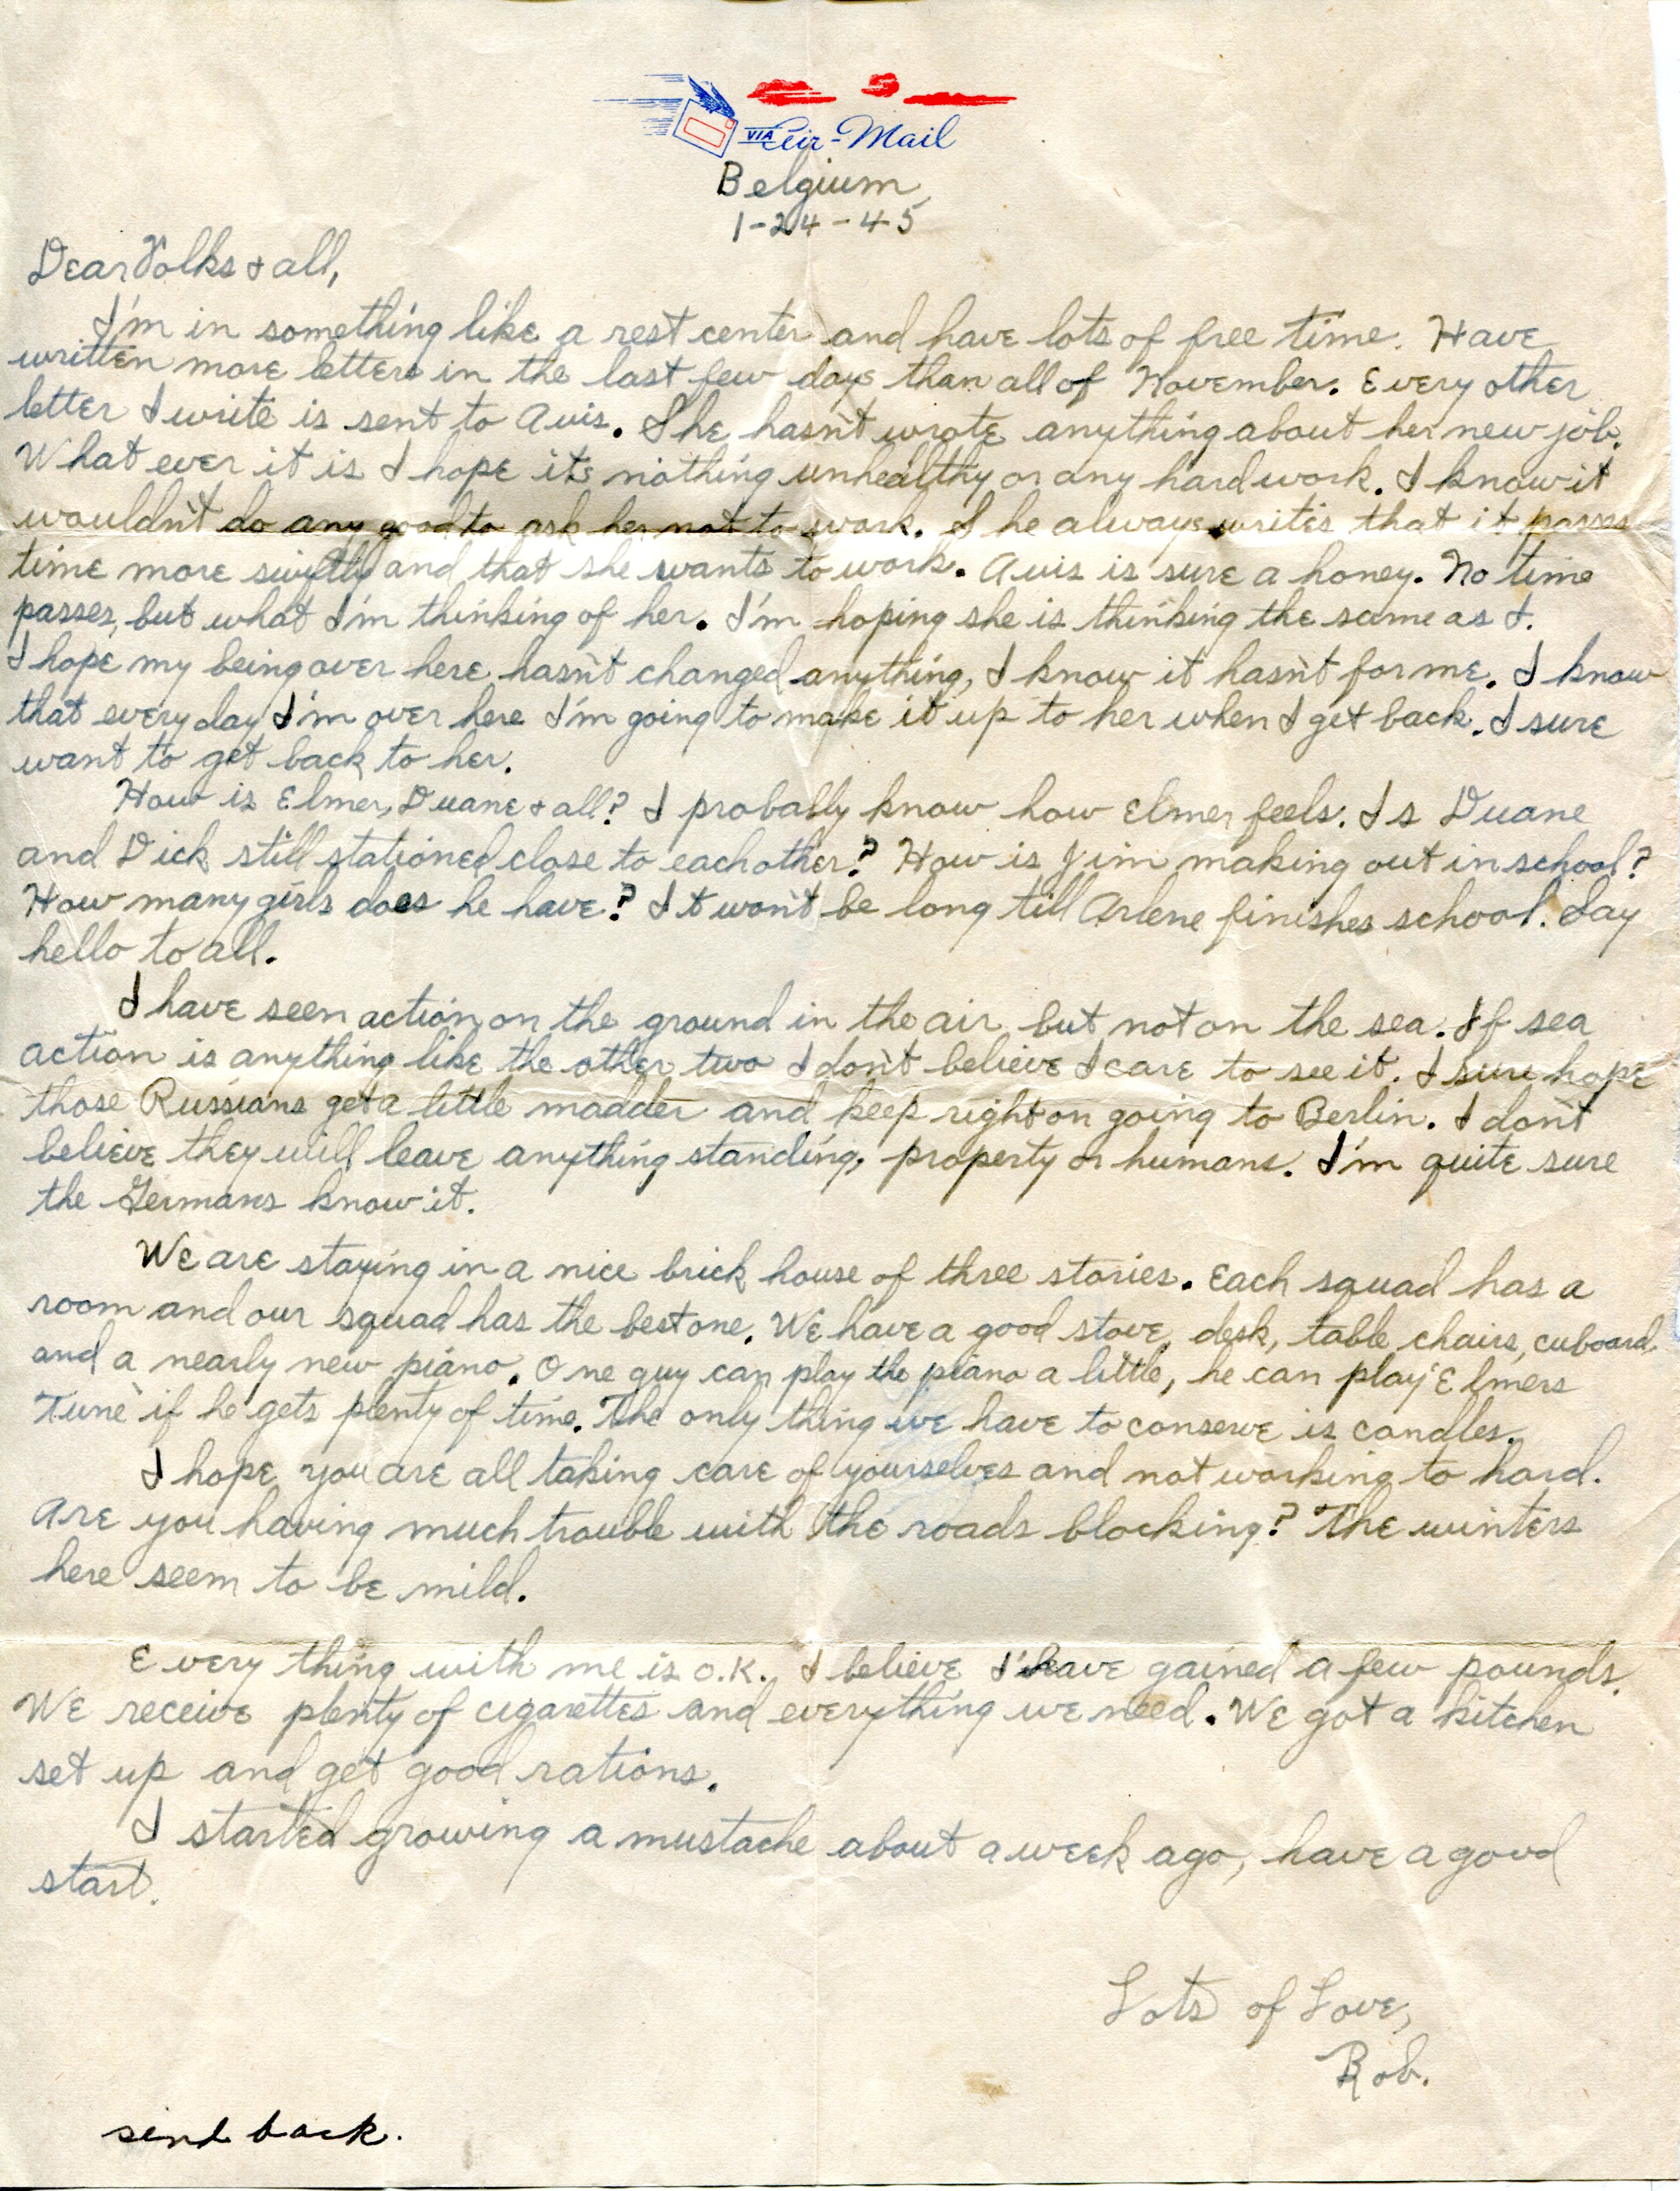 VIA Air-Mail
Belgium
1-24-45
Dear Folks & all,
I'm in something like a rest center and have lots of free time. Have
written more letters in the last few days than all of November. Every other
letter I write is sent to Avis. She hasn't wrote anything about her new job.
What ever it is I hope its nothing unhealthy or any hard work. I know it
wouldn't do any good to ask her not to work. She always writes that it passes
time more swiftly and that she wants to work. Avis is sure a honey. No time
passes, but what I'm thinking of her. I'm hoping she is thinking the same as I.
I hope my being over here hasn't changed anything, I know it hasn't for me. I know
that every day I'm over here I'm going to make it up to her when I get back. I sure
want to get back to her.
How is Elmer, Duane & all? I probably know how Elmer feels. Is Duane
and Dick still stationed close to each other? How is Jim making out in school?
How many girls does he have? It won't be long till Arlene finishes school. Say
hello to all.
I have seen action on the ground in the air, but not on the sea. If sea
action is anything like the other two I don't believe I care to see it. I sure hope
those Russians get a little madder and keep right on going to Berlin. I don't
believe they will leave anything standing, property or humans. I'm quite sure
the Germans know it.
We are staying in a nice brick house of three stories. Each squad has a
room and our squad has the best one. We have a good stove, desk, table, chairs, cuboard,
and a nearly new piano. One guy can play the piano a little, he can play "Elmers
Tune" if he gets plenty of time. The only thing we have to conserve is candles.
I hope you are all taking care of yourselves and not working to hard.
Are you having much trouble with the roads blocking? The winters
here seem to be mild.
Every thing with me is O.K. I believe I have gained a few pounds.
We receive plenty of cigarettes and everything we need. We got a kitchen
set up and get good rations.
I started growing a mustache about a week ago, have a good
start.
Lots of Love,
Rob.
send back.